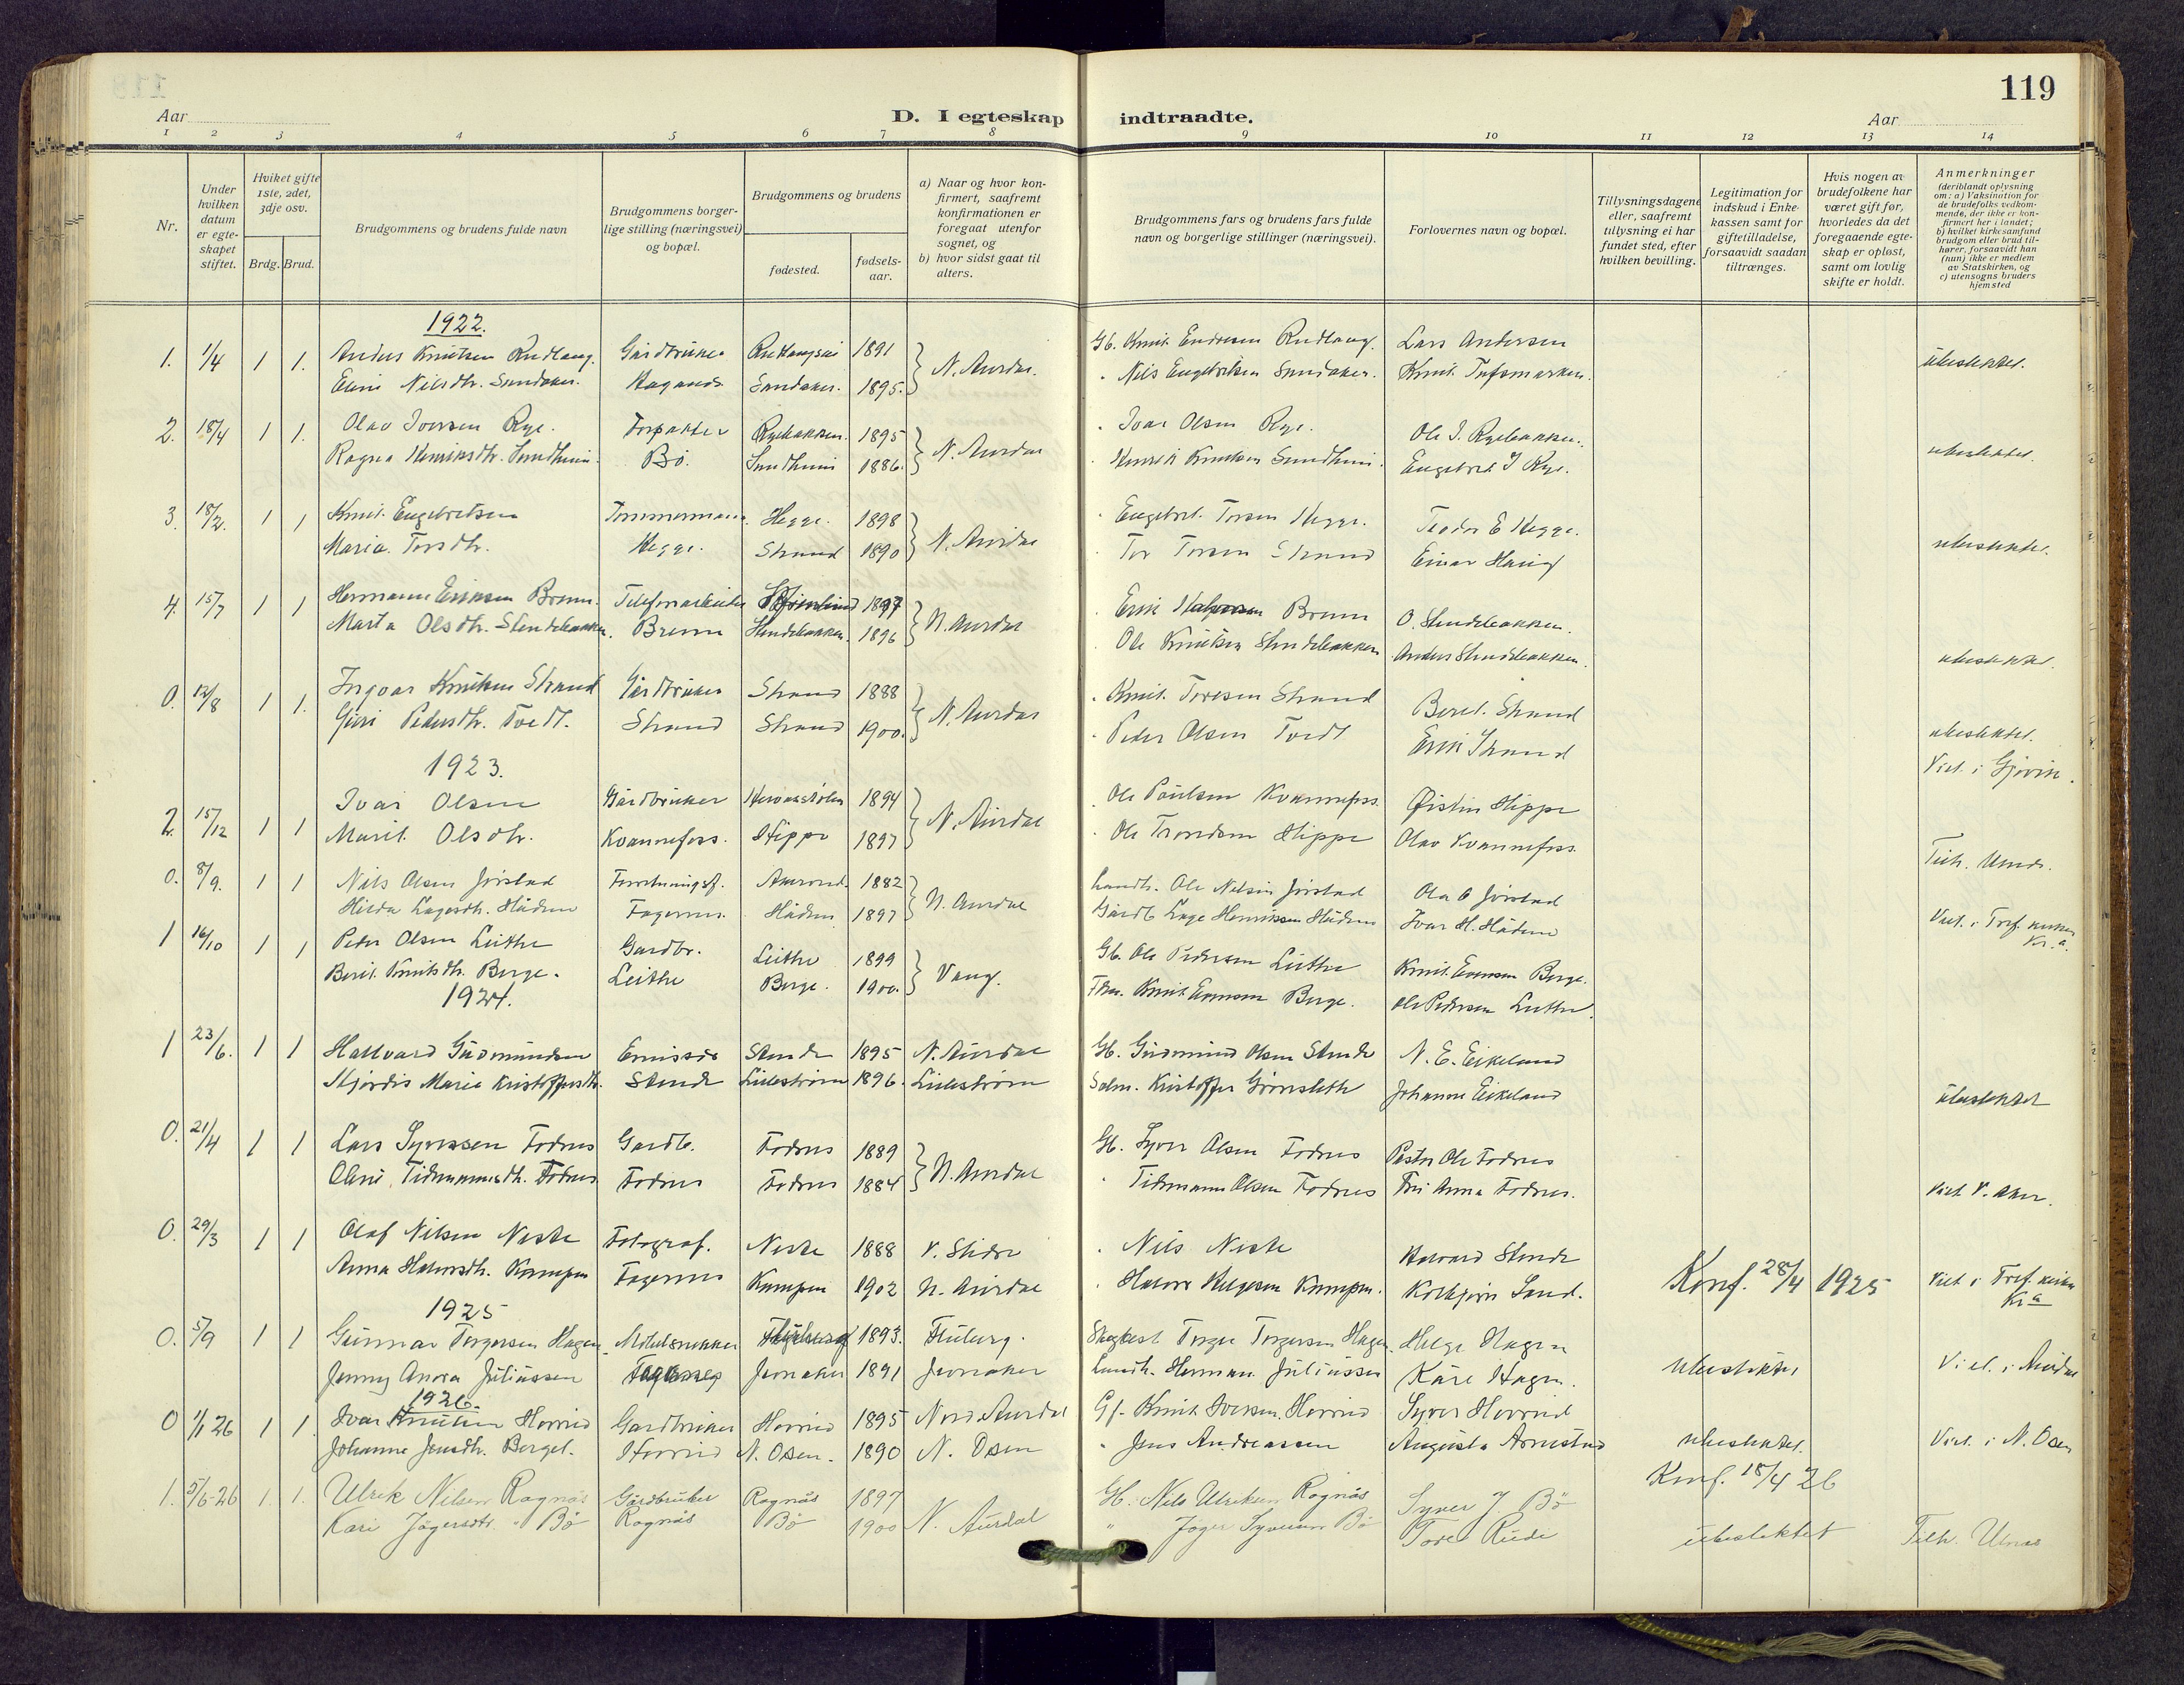 119
Aar
D. I egteskap indtraadte.
Aar
1 2 3 4 5 6 7 8 9 10 11 12 13 14
Nr.
Under hvilken datum er egteskapet stiftet.
Hviket gifte 1ste, 2det, 3dje osv.
Brdg. Brud.
Brudgommens og brudens fulde navn
Brudgommens borgerlige stilling (næringsvei) og bopæl.
Brudgommens og brudens
fødested.
fødselsaar.
a) Naar og hvor konfirmert, saafremt konfirmationen er foregaat utenfor sognet, og
b) hvor sidst gaat til alters.
Brudgommens fars og brudens fars fulde navn og borgerlige stillinger (næringsvei).
Forlovernes navn og bopæl.
Tillysningsdagene eller, saafremt tillysning ei har fundet sted, efter hvilken bevilling.
Legitimation for indskud i Enkekassen samt for giftetilladelse, forsaavidt saadan tiltrænges.
Hvis nogen av brudefolkene har været gift før, hvorledes da det foregaaende egteskap er opløst, samt om lovlig skifte er holdt.
Anmerkninger (deriblandt oplysning om: a) Vaksination for de brudefolks vedkommende, der ikke er konfirmert her i landet; b) hvilket kirkesamfund brudgom eller brud tilhører, forsaavidt han (hun) ikke er medlem av Statskirken, og c) utensogns bruders hjemsted
1922.
1. 1/4 1 1. Anders Knutsen Rudlang. Gårdbruker 1891 N. Aurdal. Gb. Knut Endresen Rudlang. Lars Andersen ubeslektet.
Nilsdr. Sundaker. Sundaker. 1895. Nils Engebretsen Sundaker. Knut Tufsmarken.
2. 18/4 1 1. Olav Iversen Rye. Forpakter Ryebakken. 1895 N. Aurdal Ivar Olsen Rye. Ole I. Ryebakken. ubeslektet.
Ragna Henriksdtr. Sundheim. Bö. Sundheim 1886. Henrik Knutsen Sundheim. Engebret I Rye.
3. 18/2. 1 1 Knut Engebretsen Tømmermann. Hegge. 1898 N. Aurdal Engebret Torsen Hegge. Teodor E Hegge. ubeslektet.
Maria Torsdtr. Hegge. Strand 1890 Tor Torsen Strand Einar Haug
4. 15/7 1 1 Hermann Eriksen Brenn. Telefonarbeider 1897 N. Aurdal Erik Brenn O. Stendebakken. ubeslektet.
Marta Olsdtr. Stendebakken. Brenn Stendebakken. 1896 Ole Knutsen Stendebakken Anders Stendebakken.
0. 12/8 1 1. Ingvar Knutsen Strand Gårdbruker Strand 1888 N. Aurdal Knut Toresen Strand Beret Strand ubeslektet.
Guri Pedersdtr. Tvedt. Strand Strand 1900. Peder Olsen Tvedt Erik Strand Viet i Gjøvik.
1923.
2. 15/12 1 1 Ivar Olsen Gårdbruker 1894 N. Aurdal Ole Paulsen Kvannefoss. Øistin Hippe
Marit Olsdtr. Kvannefoss. Hippe 1897 Ole Trondsen Hippe Olav Kvannefoss. Tilh. Ulnes.
0. 8/9. 1 1 Nils Olsen Jörstad Forretningsf. 1882 N. Aurdal Landh. Ole Nilsen Jörstad Ola O Jörstad
Hilda Lagesdtr. Hådem Fagernes. Hådem 1897 Gårdb Lage Henriksen Hådem Ivar H. Hådem Viet i Tref. kirken Kr.a.
1 16/10 1 1 Peder Olsen Leithe Gardbr. Leithe 1899 Vang. Gb. Ole Pedersen Leithe Knut Evensen Berge.
Berit Knutsdtr. Berge. Leithe Berge. 1900. Knut Evensen Berge. Ole Pedersen Leithe.
1924.
1 23/6. 1 1 Hallvard Gudmundsen Emissær Stende 1895 N. Aurdal Gb. Gudmund Olsen Stende N. E. Eikeland
Hjørdis Marie Kristoffersdtr. Stende Lillestrøm 1896. Lillestrøm Kristoffer Johanne Eikeland ubeslektet
0. 21/4 1 1 Lars Syversen Fodnes Gardb. Fodnes 1889 N. Aurdal Gb. Syver Olsen Fodnes Pastor Ole Fodnes
Oline Tidemannsdtr. Fodnes Fodnes Fodnes 1884 Tidemann Olsen Fodnes Anna Fodnes. Viet V. Aker.
0. 29/3 1 1 Olaf Nilsen Neste Fotograf. Neste 1888 V. Slidre Nils Neste Halvard Stende
Anna Halvorsdtr. Kampen Fagernes Kampen 1902 N. Aurdal Halvor Helgesen Kampen. Sand. Konf. 28/4 1925 Viet i Tref. kirken Kra
1925
0. 5/9 1 1 Gunnar Torgersen Hagen Möbelsnekker Fluberg 1893. Fluberg. Torger Torgersen Hagen. Helge Hagen
Jenny Anora Juliussen Fagernes Jevnaker 1891 Jevnaker Landh. Herman Juliussen Kåre Hagen. Ubeslektet Viet i Aurdal
1926.
0 1/1 26 1 1. Ivar Knutsen Hovrud Gardbruker Hovrud 1895 Nord Aurdal Knut Iversen Hovrud Syver Hovrud
Johanne Jensdtr. Berget. Hovrud N. Osen. 1890 N. Osen Jens Andreassen Augusta Arnestad ubeslektet. Viet i N. Osen
Konf. 18/4 26
1. 5/6-26 1. 1. Ulrik Nilsen Rognås Gårdbruker Rognås 1897 N. Aurdal Gb. Nils Ulriksen Rognås Syver J. Bö
Kari Jögersdtr. Bö Rognås Bö 1900 " Jöger Syversen Bö Tore Rude ubeslektet Tilh. Ulnes